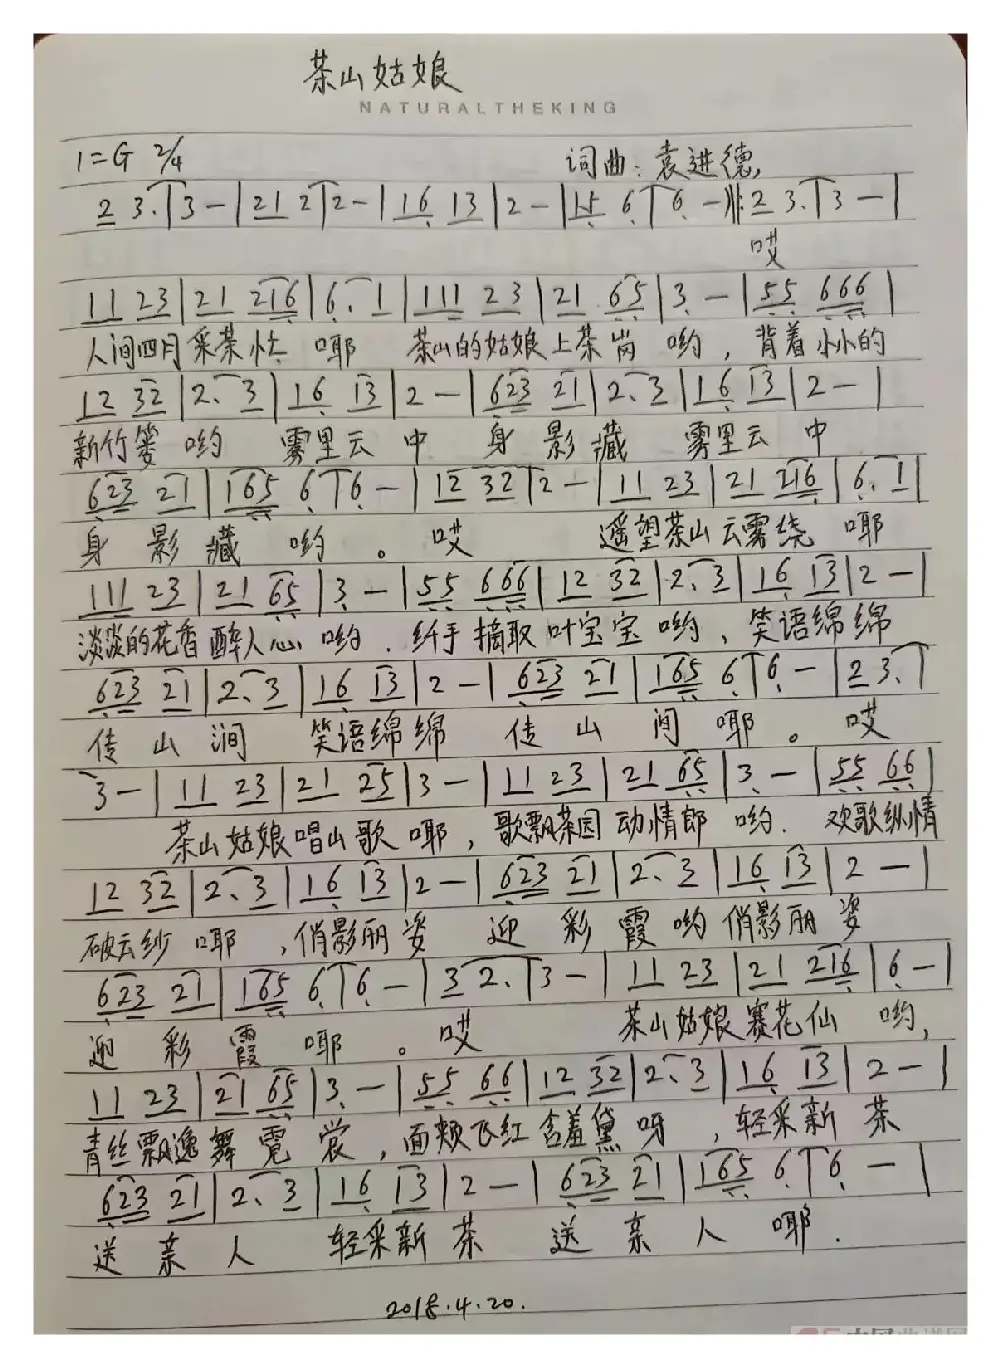 茶山姑娘
NATURALTHEKING
1=G 2/4 词曲：袁进德
2 3. | 3 — | 21 2 | 2 — | 16 13 | 2 — | 15 6 | 6 — ‖: 2 3. | 3 — |
哎
11 23 | 21 216 | 6. 1 | 111 23 | 21 65 | 3 — | 55 666 |
人间四月采茶忙 耶 茶山的姑娘上茶岗 哟，背着小小的
12 32 | 2. 3 | 16 13 | 2 — | 623 21 | 2. 3 | 16 13 | 2 — |
新竹篓 哟 雾里云 中 身 影 藏 雾里云 中
623 21 | 165 6 | 6 — | 12 32 | 2 — | 11 23 | 21 216 | 6. 1 |
身 影 藏 哟 。 哎 遥望茶山云雾绕 耶
111 23 | 21 65 | 3 — | 55 666 | 12 32 | 2. 3 | 16 13 | 2 — |
淡淡的花香醉人心 哟 . 纤手摘取叶宝宝 哟，笑语绵绵
623 21 | 2. 3 | 16 13 | 2 — | 623 21 | 165 6 | 6 — | 23. |
传 山 涧 笑语绵绵 传 山 间 耶 。 哎
3 — | 11 23 | 21 25 | 3 — | 11 23 | 21 65 | 3 — | 55 66 |
茶山姑娘唱山歌 耶，歌飘茶园动情郎 哟． 欢歌纵情
12 32 | 2. 3 | 16 13 | 2 — | 623 21 | 2. 3 | 16 13 | 2 — |
破云纱 耶 ，俏影丽 姿 迎 彩 霞 哟俏影丽 姿
623 21 | 165 6 | 6 — | 3 2. | 3 — | 11 23 | 21 216 | 6 — |
迎 彩 霞 耶 。 哎 茶山姑娘赛花仙 哟，
11 23 | 21 65 | 3 — | 55 66 | 12 32 | 2. 3 | 16 13 | 2 — |
青丝飘逸舞 霓 裳，面颊飞红含羞黛 呀 ，轻采新 茶
623 21 | 2. 3 | 16 13 | 2 — | 623 21 | 165 6 | 6 — |
送 亲 人 轻采新 茶 送 亲 人 耶 ．
2018.4.20.